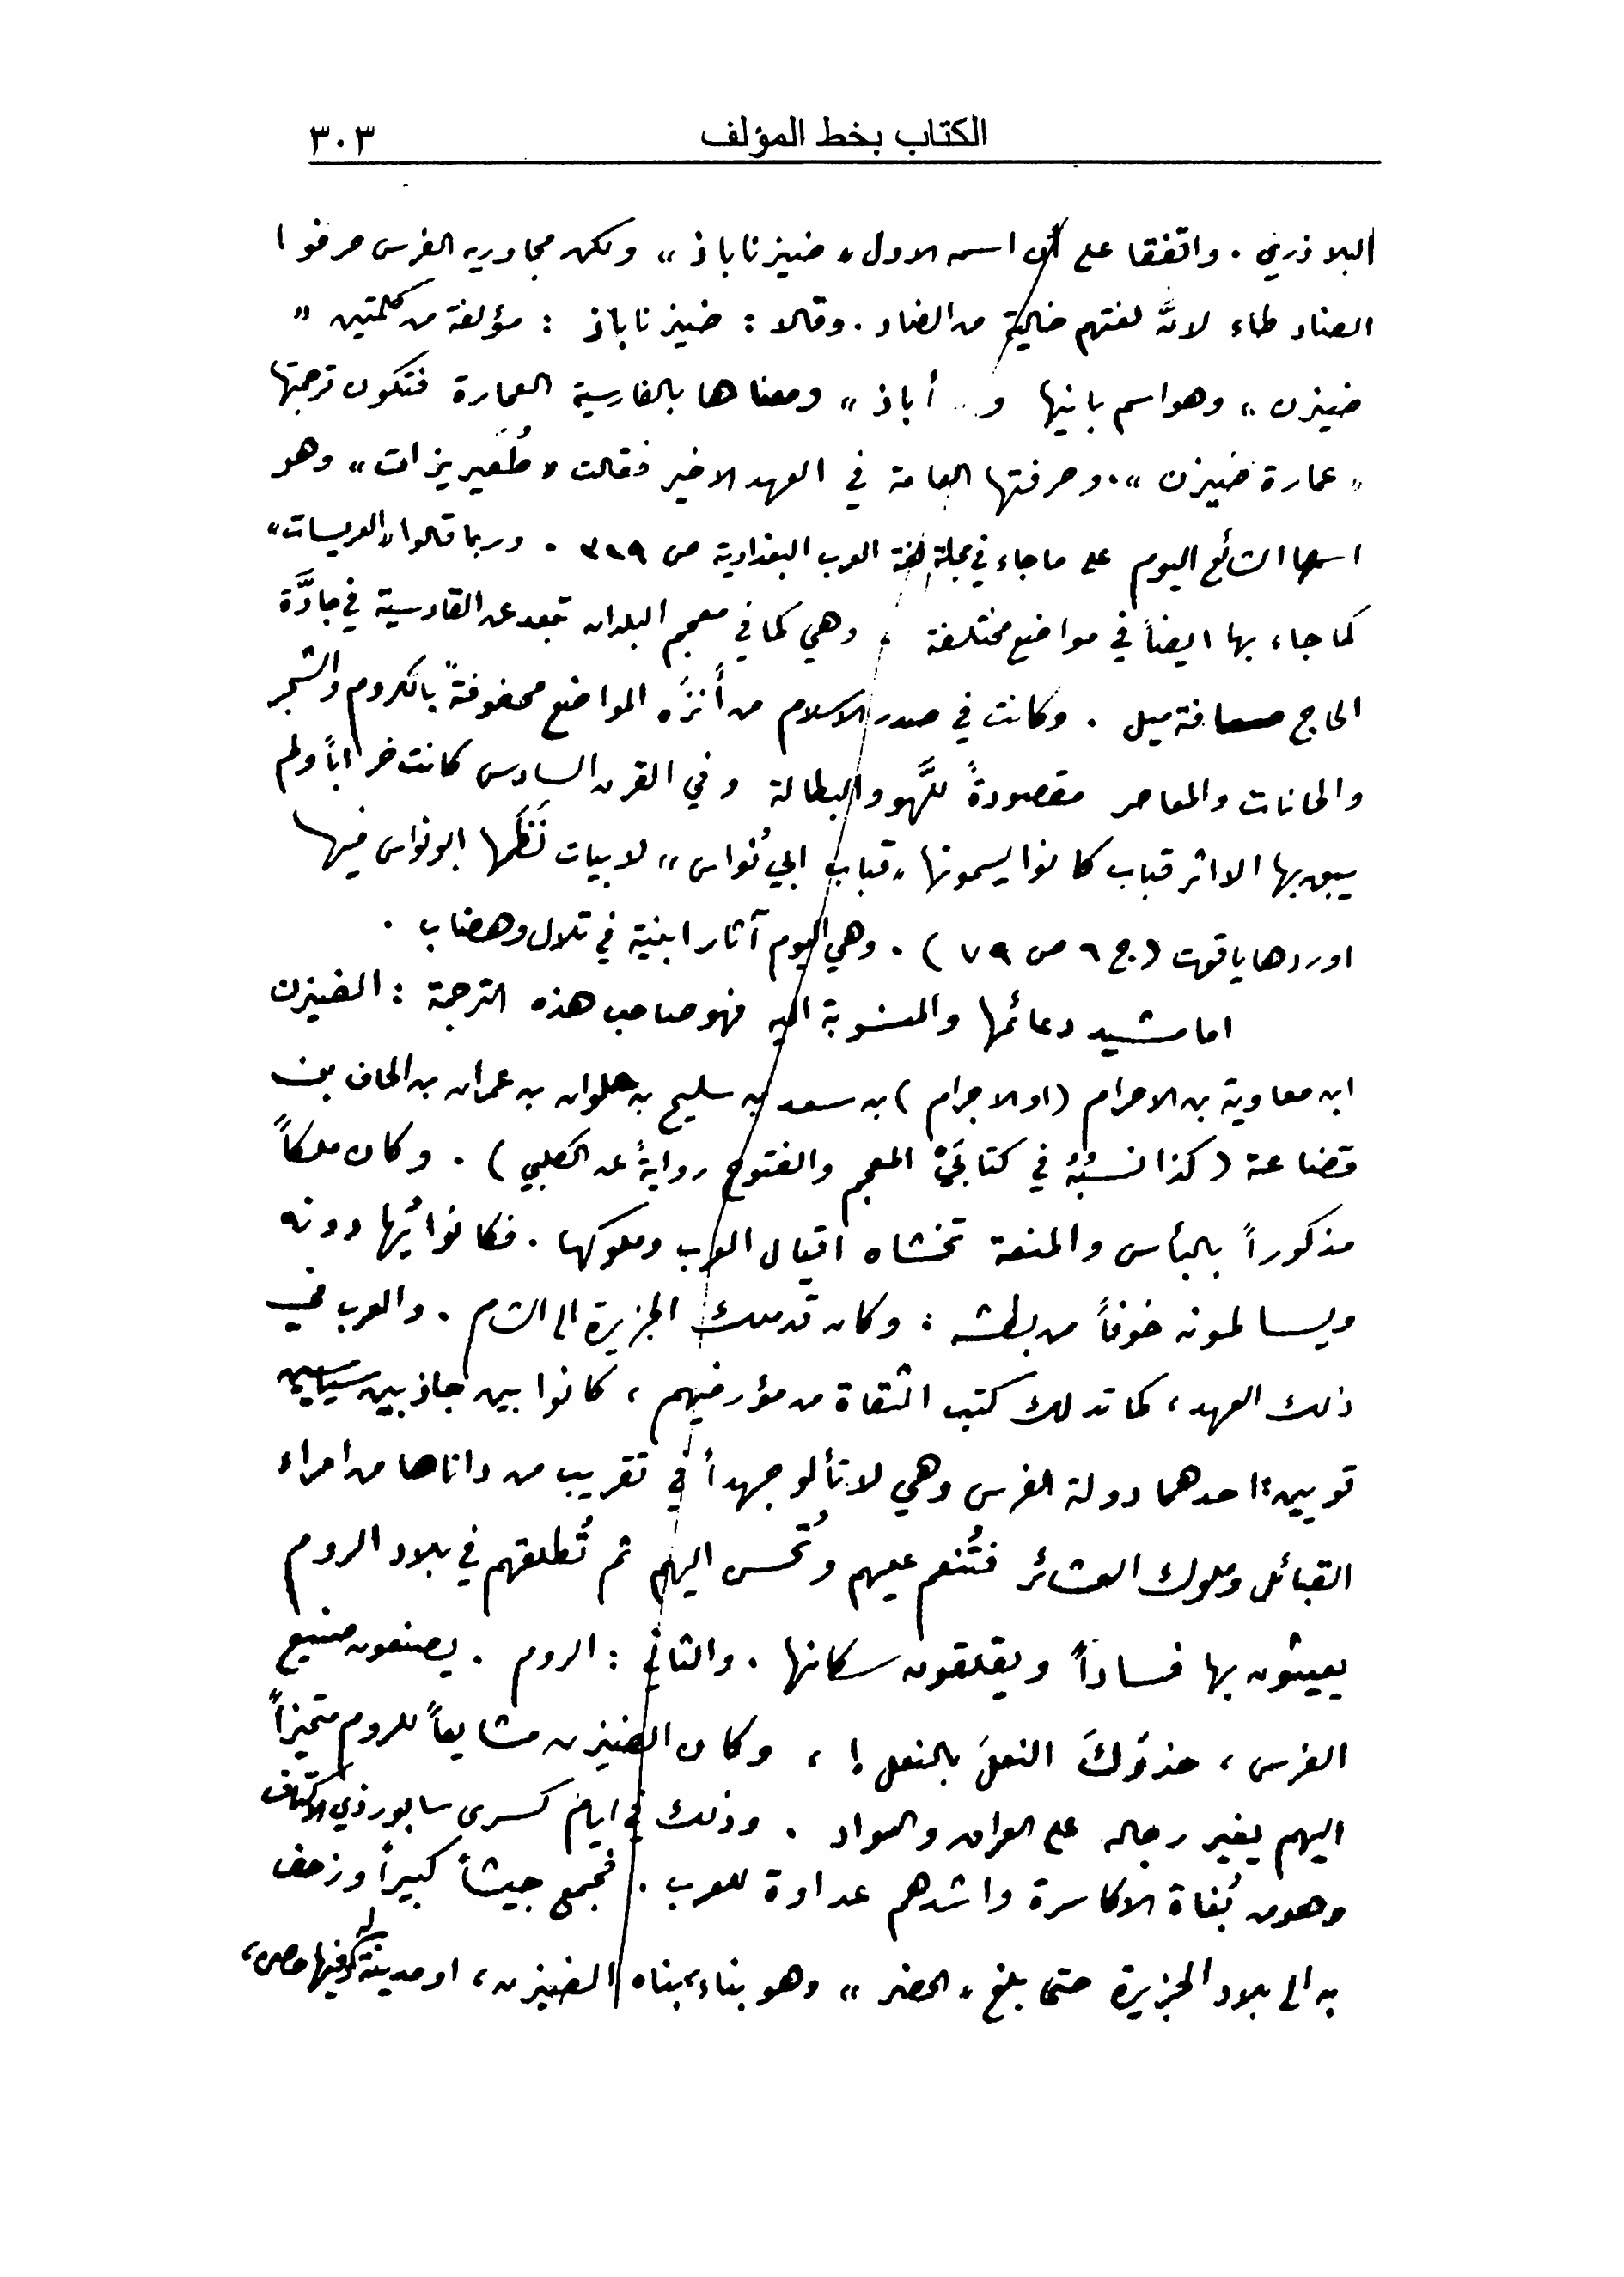 الكتاب بخط المؤلف ٣٠٣
البلاذري . واتفقا على أن اسمه الاول « ضيزناباذ » ولكن مجاوريه الفرس حرفوا
الضاد طاء لانَّ لغتهم خالية من الضاد . وقالا : ضيزناباذ : مؤلفة من كلمتين «
ضيزن » وهو اسم بانيها و « أباذ » ومعناها بالفارسية العمارة فتكون ترجمتها
« عمارة ضيزن » . وحرفتها العامة في العهد الاخير فقالت « طُعَيريزات » وهو
اسمها الشائع اليوم على ما جاء في مجلة لغة العرب البغدادية ص ٣٣٩ . وربما قالوا « العريسات »
كما جاء بها ايضاً في مواضع مختلفة . وهي كما في معجم البلدان تبعد عن القادسية في جادَّة
الحاج مسافة ميل . وكانت في صدر الاسلام من أَنزَه المواضع محفوفةً بالكروم والشجر
والحانات والمعاصر مقصودةً للَّهو والبطالة وفي القرن السادس كانت خراباً ولم
يبق بها الا اثر قباب كانوا يسمونها « قباب ابي نُواس » لابيات نَظَمها ابو نواس فيها
اوردها ياقوت ( ج ٦ ص ٧٩ ) . وهي اليوم آثار ابنية في تلال وهضاب .
اما مشيد دعائمها والمنسوبة اليه فهو صاحب هذه الترجمة : الضيزن
ابن معاوية بن الاحرام ( او الاجرام ) بن سعد بن سليح بن حلوان بن عمران بن الحاف بن
قضاعة ( كذا نسبُهُ في كتابَيْ المعجم والفتوح روايةً عن الكلبي ) . وكان ملكاً
مذكوراً بالبأس والمنعة تخشاه اقيال العرب وملوكها . فكانوا يُهادونه
ويسالمونه خوفاً من بطشه : وكان قد ملك الجزيرة الى الشام . والعرب في
ذلك العهد ، كما تدلك كتب الثقاة من مؤرخيهم ، كانوا بين جاذبين سياسيين
قويين : احدهما دولة الفرس وهي لا تألو جهداً في تقريب من داناها من امراء
القبائل وملوك العشائر فتُنعم عليهم وتُحسن اليهم ثم تُطلقهم في بلاد الروم
يعيثون بها فساداً ويقلقون سكانها . والثاني : الروم . يصنعون صنيع
الفرس ، حذوَكَ النعلَ بالنعل ! ، وكان الضيزن مشايعاً للروم متحيزاً
اليهم يغير رجاله على العراق والسواد . وذلك في ايام كسرى سابور ذي الاكتاف
وهو من بُغاة الاكاسرة واشدهم عداوة للعرب . فجمع جيشاً كبيراً وزحف
به الى بلاد الجزيرة حتى بلغ « الحضر » وهو بناء بناه الضيزن ، او مدينة له فيها حصن ،